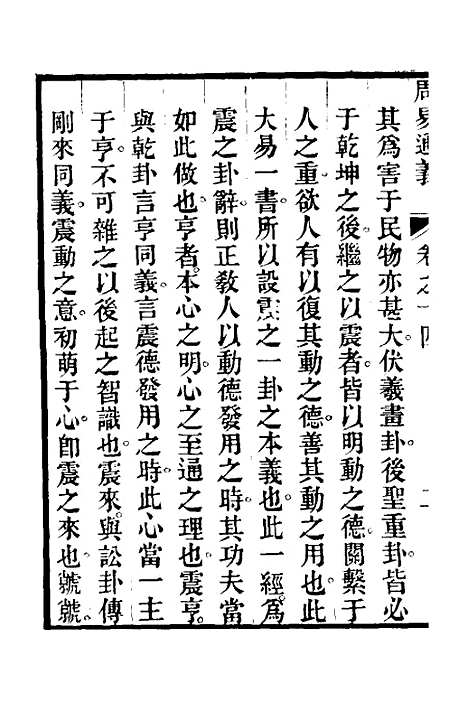 周易通義　卷之十四　二
其爲害于民物亦甚大伏羲畫卦後聖重卦皆必
于乾坤之後繼之以震者皆以明動之德關繫于
人之重欲人有以復其動之德善其動之用也此
大易一書所以設震之一卦之本義也此一經爲
震之卦辭則正教人以動德發用之時其功夫當
如此做也亨者本心之明心之至通之理也震亨
與乾卦言亨同義言震德發用之時此心當一主
于亨不可雜之以後起之智識也震來與訟卦傳
剛來同義震動之意初萌于心卽震之來也虩虩